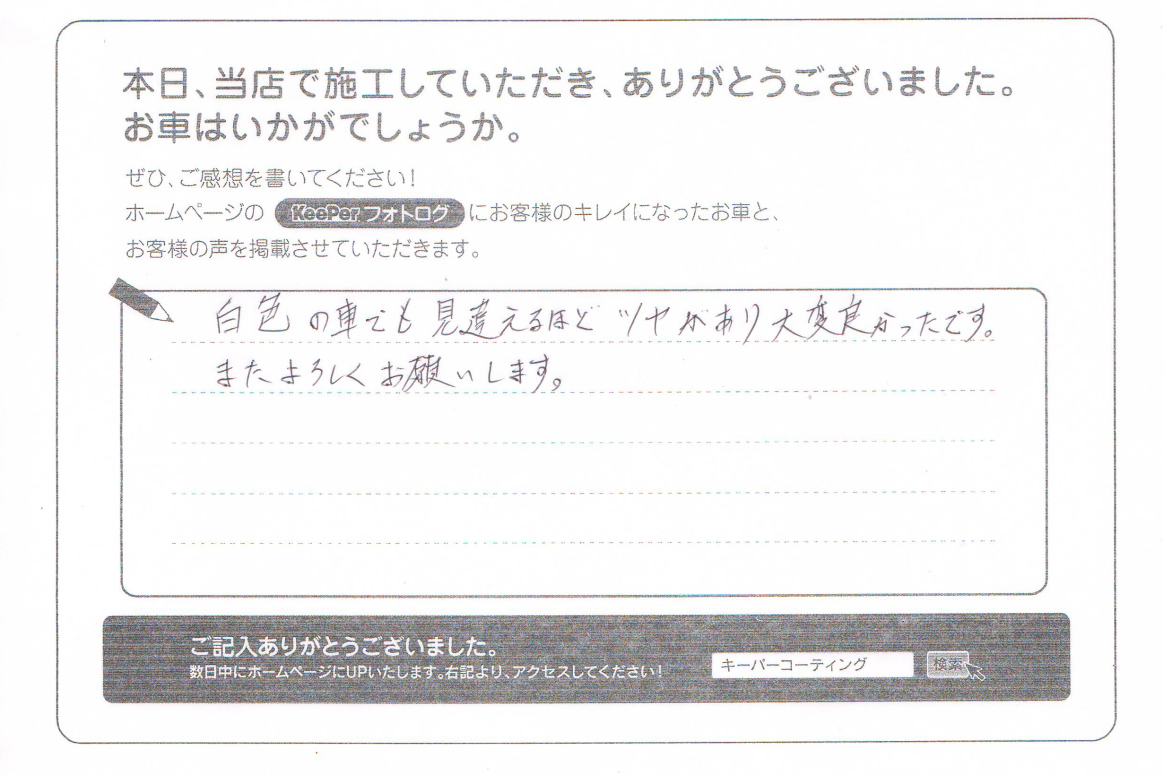 本日、当店で施工していただき、ありがとうございました。
お車はいかがでしょうか。
ぜひ、ご感想を書いてください！
ホームページの KeePer フォトログ にお客様のキレイになったお車と、
お客様の声を掲載させていただきます。
白色の車でも見違えるほどツヤがあり大変良かったです。
またよろしくお願いします。
ご記入ありがとうございました。
数日中にホームページにUPいたします。右記より、アクセスしてください！
キーパーコーティング 検索